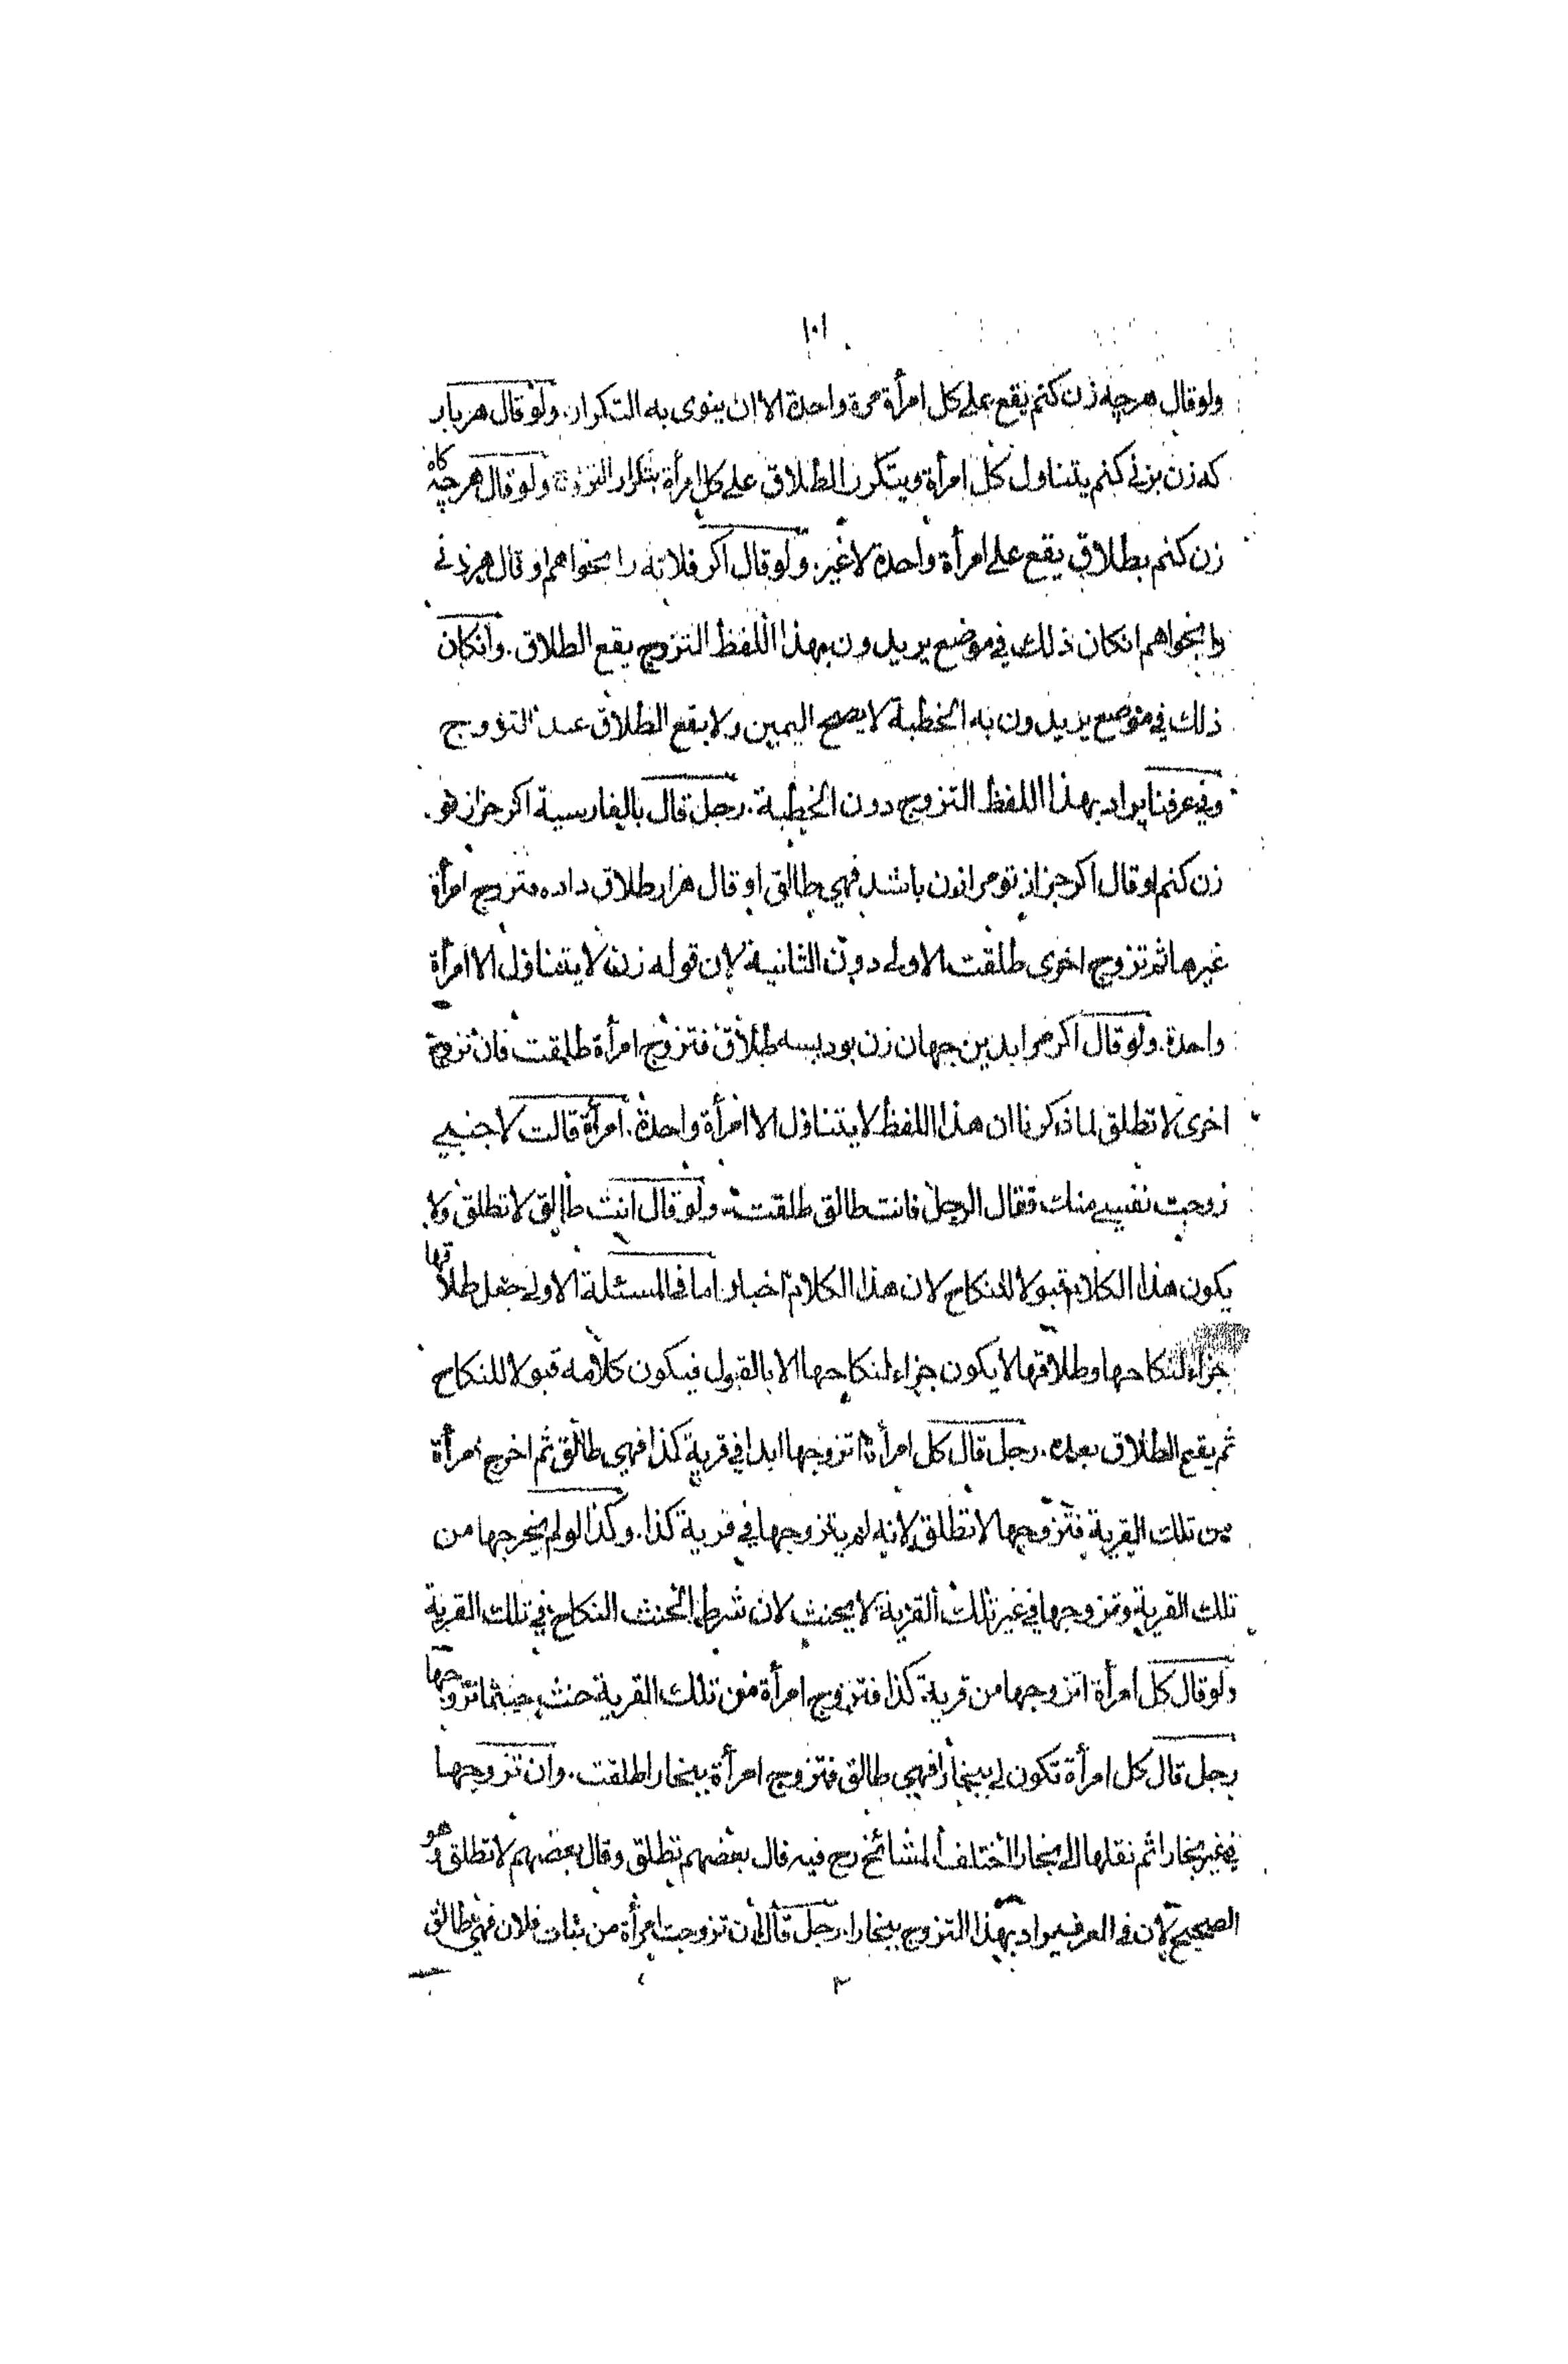 ١٠١
ولو قال هرچه زن کنم يقع على كل امرأة مرة واحدة الا ان ينوى به التكرار. ولو قال هر بار
که زن بزنی کنم يتناول كل امرأة ويتكرر الطلاق على كل امرأة بتكرار التزوج ولو قال هرچه گاه
زن کنم بطلاق يقع على امرأة واحدة لا غير. ولو قال اکر فلانه را بخواهم او قال هر زنی
را بخواهم انكان ذلك في موضع يريدون بهذا اللفظ التزوج يقع الطلاق. وانكان
ذلك في موضع يريدون به الخطبة لا يصح اليمين ولا يقع الطلاق عند التزوج
وفي عرفنا يراد بهذا اللفظ التزوج دون الخطبة. رجل قال بالفارسية اکر جز از تو
زن کنم او قال اکر جز از تو مرا زن باشد فهي طالق او قال هزار طلاق داده فتزوج امرأة
غيرها ثم تزوج اخرى طلقت الاولى دون الثانية لان قوله زن لا يتناول الا امرأة
واحدة. ولو قال اکر مرا بدين جهان زن بود بسه طلاق فتزوج امرأة طلقت فان تزوج
اخرى لا تطلق لما ذكرنا ان هذا اللفظ لا يتناول الا امرأة واحدة. امرأة قالت لاجنبي
زوجت نفسي منك فقال الرجل فانت طالق طلقت. ولو قال انت طالق لا تطلق ولا
يكون هذا الكلام قبولا للنكاح لان هذا الكلام اخبار اما في المسئلة الاولى جعل طلاقها
جزاء لنكاحها وطلاقها لا يكون جزاء لنكاحها الا بالقبول فيكون كلامه قبولا للنكاح
ثم يقع الطلاق بعده. رجل قال كل امرأة اتزوجها ابدا في قرية كذا فهي طالق ثم اخرج امرأة
من تلك القرية فتزوجها لا تطلق لانه لم يتزوجها في قرية كذا. وكذا لو لم يخرجها من
تلك القرية وتزوجها في غير تلك القرية لا يحنث لان شرط الحنث النكاح في تلك القرية
ولو قال كل امرأة اتزوجها من قرية كذا فتزوج امرأة من تلك القرية حنث حيثما تزوجها
رجل قال كل امرأة تكون لي ببخارا فهي طالق فتزوج امرأة ببخارا طلقت. وان تزوجها
في غير بخارا ثم نقلها الى بخارا اختلف المشائخ رح فيه قال بعضهم تطلق وقال بعضهم لا تطلق وهو
الصحيح لان في العرف يراد بهذا التزوج ببخارا. رجل قال ان تزوجت امرأة من بنات فلان فهي طالق